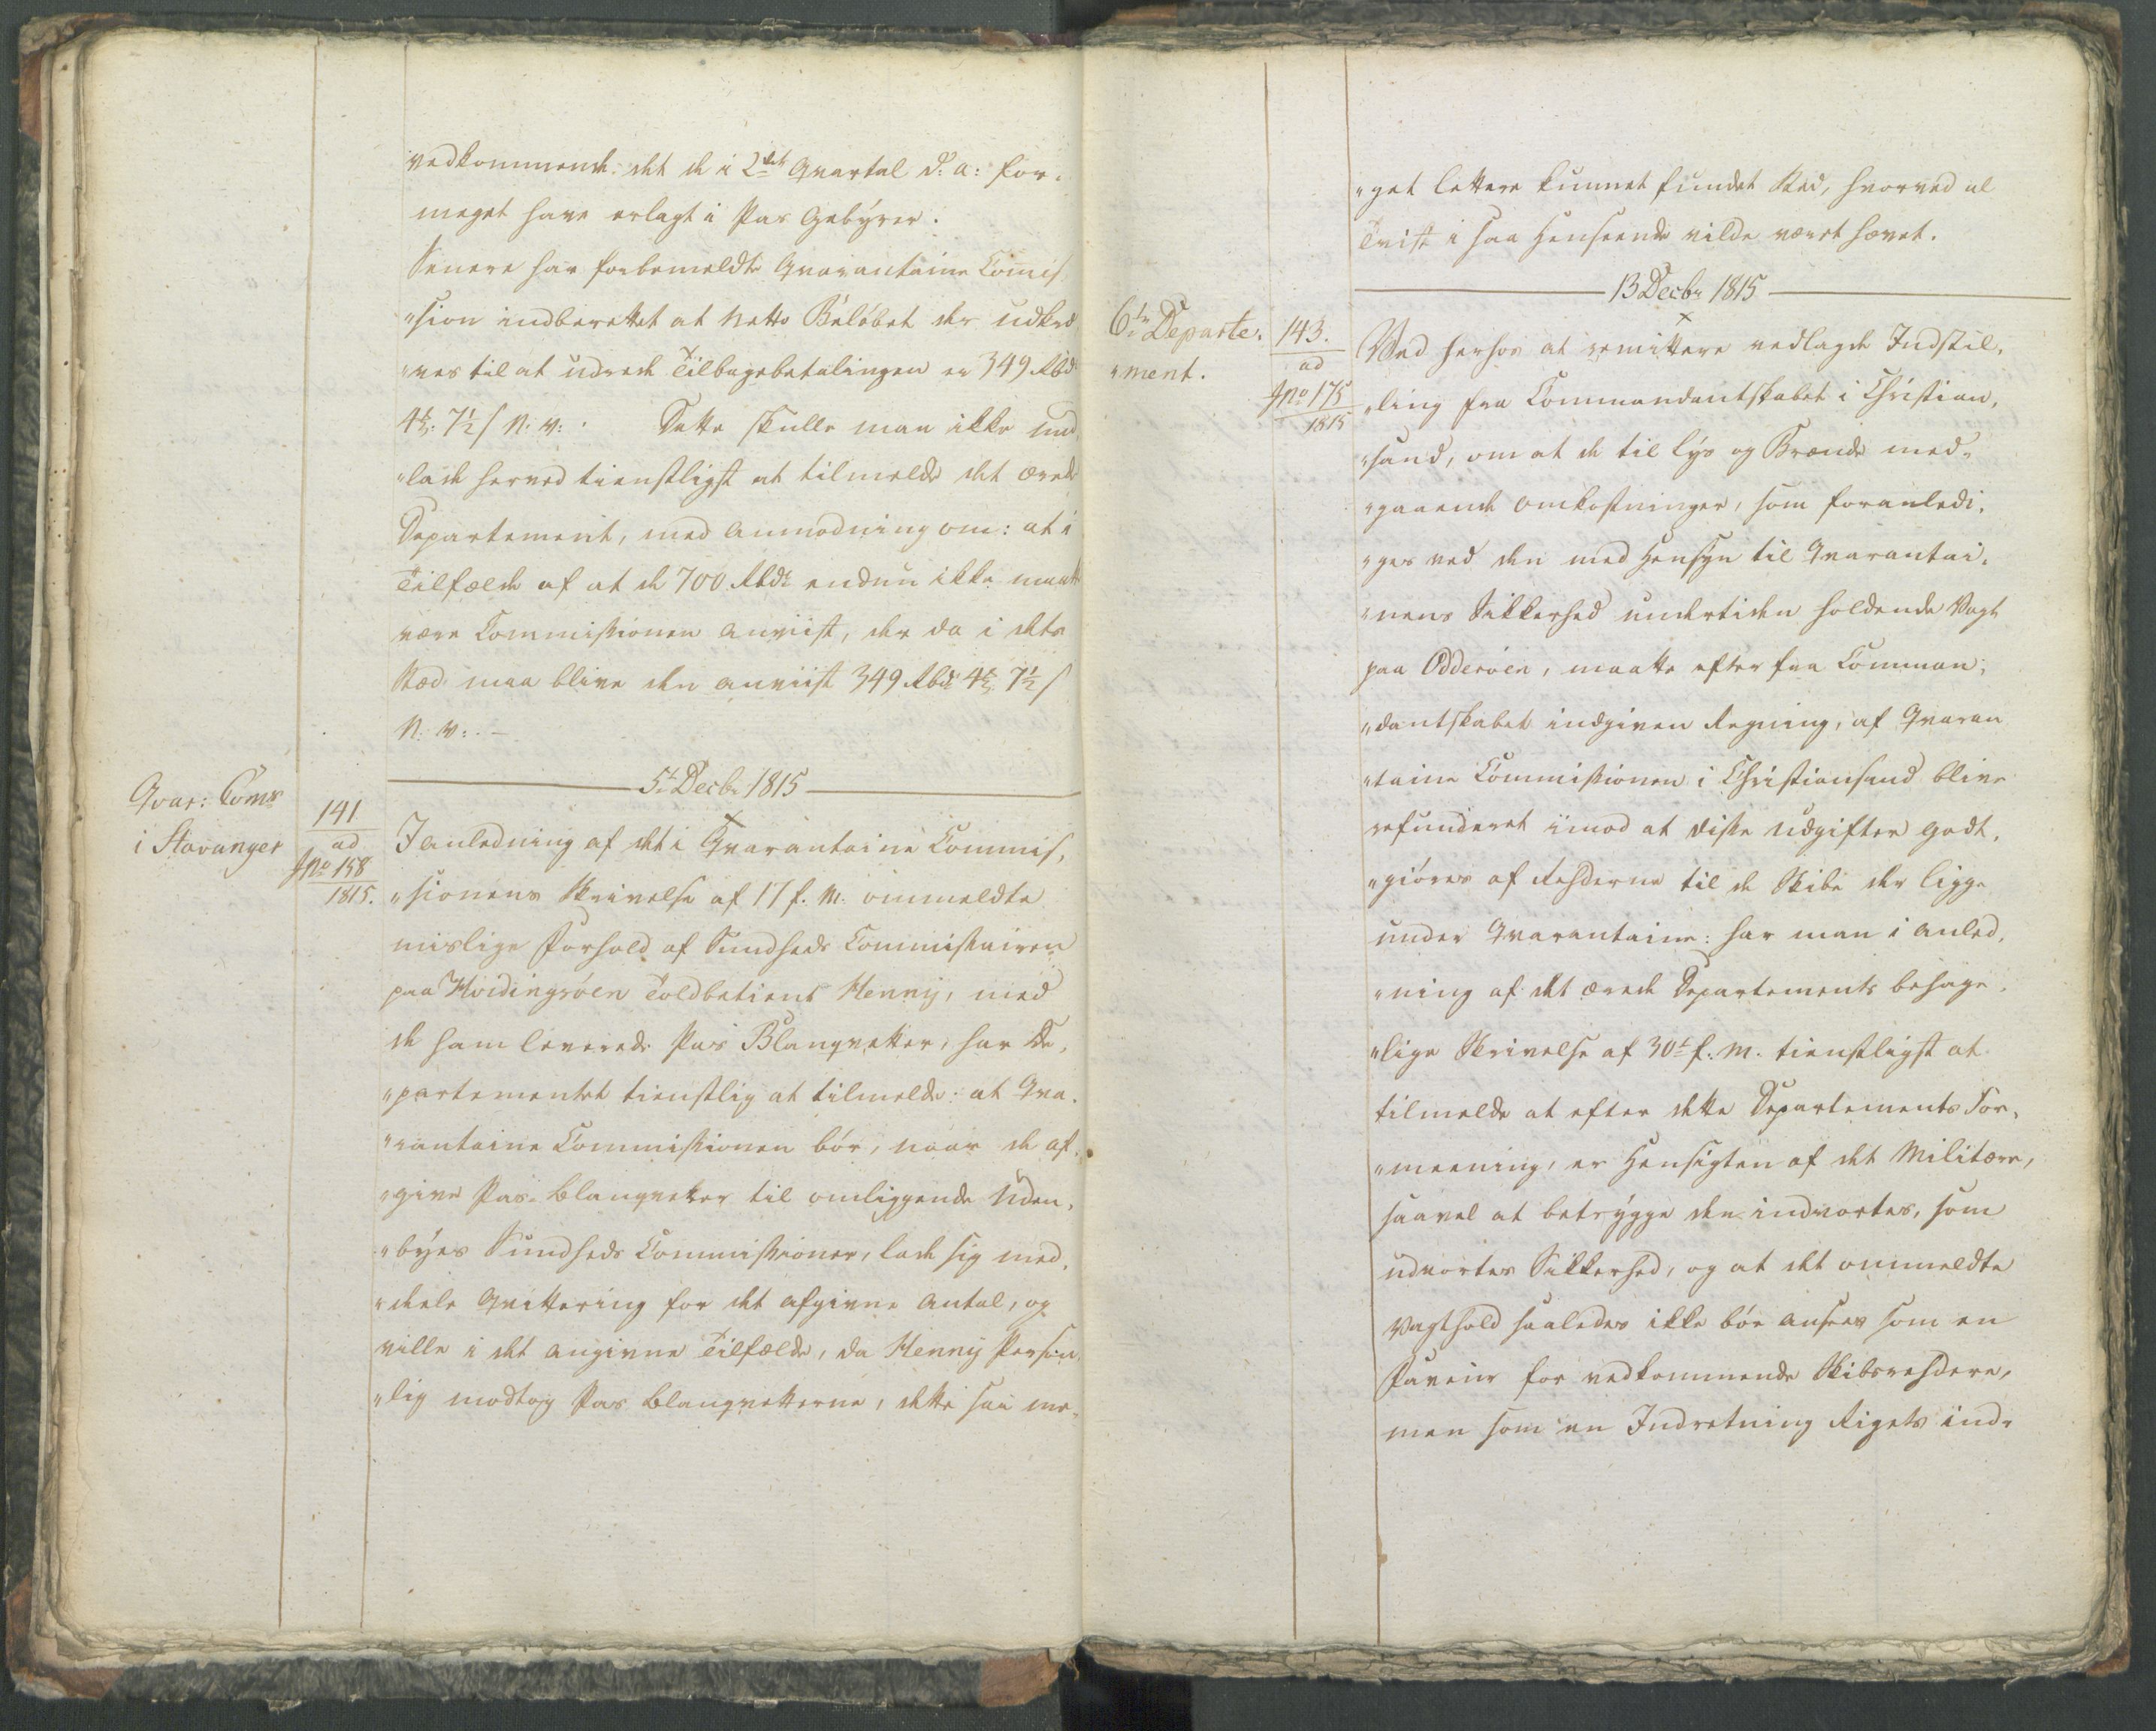 vedkommende det de i 2det Qvartal d: a: for-
meget have erlagt i Pas Gebyrer.
Senere har forbemeldte Qvarantaine Comis
"sion indberettet at Netto Beløbet der udkræ
"ves til at udrede Tilbagebetalingen er 349 Rbd
4 7½ s N. V: Dette skulle man ikke und
"lade herved tienstligst at tilmelde det ærede
Departement, med Anmodning om: at i
Tilfælde af at de 700 Rbd endnu ikke maatte
være Commissionen anviist, der da i dets
Sted maa blive den anviist 349 Rbd 4 7½ s
N: V: -
5t Decbr 1815
Qvar: Coms
i Stavanger
141
ad
JNo 158
1815.
I Anledning af det i Qvarantaine Commis,
"sionens Skrivelse af 17 f. M. ommeldte
mislige Forhold af Sundheds Commissairen
paa Hvidingsøen Toldbetient Henny, med
de ham leverede Pas Blanqvetter, har De,
"partementet tienstlig at tilmelde: at Qva,
"rantaine Commissionen bør, naar de af,
"give Pas-Blanqvetter til omliggende Uden,
"byes Sundheds Commissioner, lade sig med,
"dele Qvittering for det afgivne Antal, og
ville i det angivne Tilfælde, da Henny Person,
"lig modtog Pas Blanqvetterne, dette saa me-
"get lettere kunnet fundet Sted, hvorved al
Tvist i saa Henseende vilde været hævet.
13 Decbr 1815
6te Departe,
"ment.
143.
ad
JNo 175
1815
Ved herhos at remittere vedlagde Indstil,
"ling fra Commandantskabet i Christian,
"sand, om at de til Lys og Brænde med-
"gaaende Omkostninger, som foranledi,
"ges ved den med Hensyn til Qvarantai,
"nens Sikkerhed undertiden holdende Vagt
paa Odderøen, maatte efter fra Comman,
"dantskabet indgiven Regning, af Qvaran
"taine Commissionen i Christiansand blive
refunderet imod at disse Udgifter godt,
"giøres af Rehderne til de Skibe der ligge
under Qvarantaine: har man i Anled,
"ning af det ærede Departements behage,
"lige Skrivelse af 30t f. M. tienstligst at
tilmelde at efter dette Departements For,
"meening, er Hensigten af det Militære,
saavel at betrygge den indvortes, som
udvortes Sikkerhed, og at det ommeldte
Vagthold saaledes ikke bør ansees som en
Faveur for vedkommende Skibsrehdere,
men som en Indretning Rigets ind-